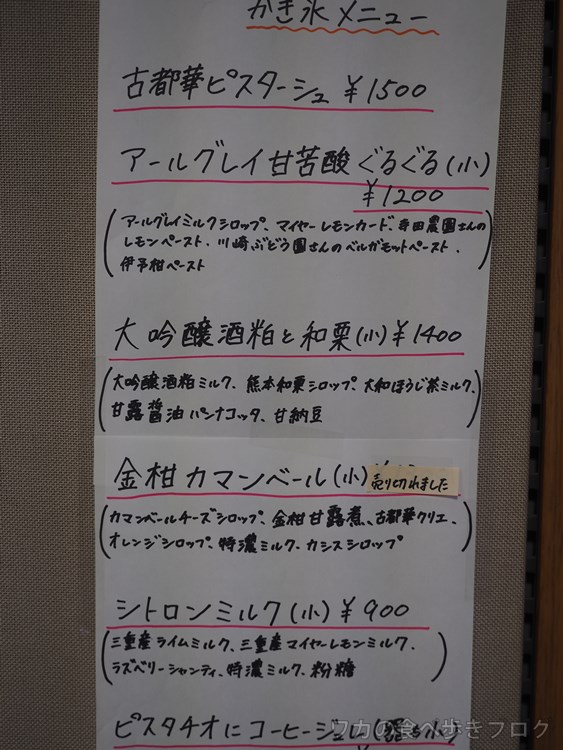 かき氷メニュー
古都華ピスターシュ ¥1500
アールグレイ甘苦酸 ぐるぐる(小)
¥1200
(アールグレイミルクシロップ、マイヤーレモンカード、寺田農園さんの
レモンペースト、川崎ぶどう園さんのベルガモットペースト、
伊予柑ペースト)
大吟醸酒粕と和栗(小)¥1400
(大吟醸酒粕ミルク、熊本和栗シロップ、大和ほうじ茶ミルク、
甘露醤油パンナコッタ、甘納豆)
金柑カマンベール(小) 売り切れました
(カマンベールチーズシロップ、金柑甘露煮、古都華クリエ、
オレンジシロップ、特濃ミルク、カシスシロップ)
シトロンミルク(小)¥900
(三重産ライムミルク、三重産マイヤーレモンミルク、
ラズベリーシャンティ、特濃ミルク、粉糖)
ピスタチオにコーヒージュレ(器も小)
ワカの食べ歩きブログ